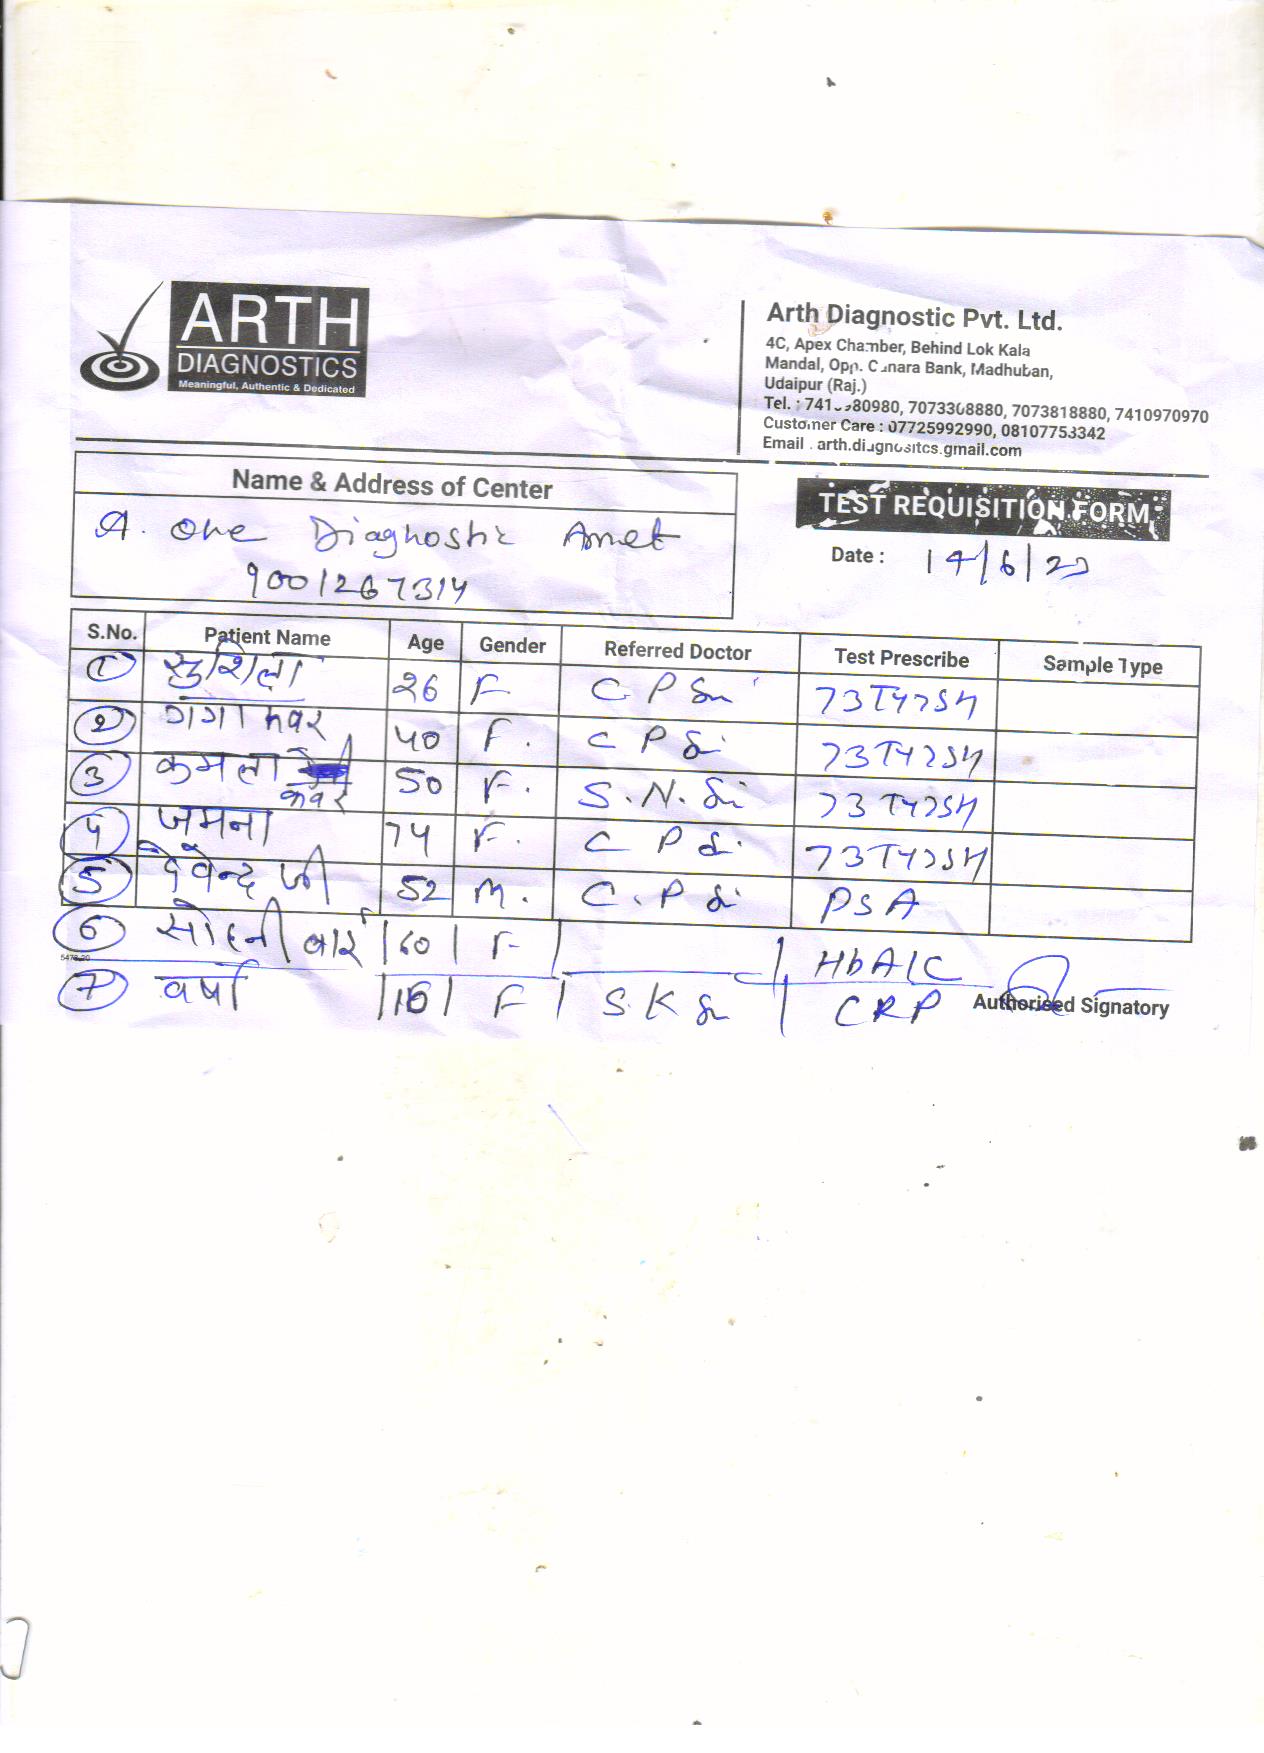 ARTH
DIAGNOSTICS
Meaningful, Authentic & Dedicated
Arth Diagnostic Pvt. Ltd.
4C, Apex Chamber, Behind Lok Kala
Mandal, Opp. Canara Bank, Madhuban,
Udaipur (Raj.)
Tel. : 741 980980, 7073308880, 7073818880, 7410970970
Customer Care : 07725992990, 08107753342
Email . arth.diagnositcs.gmail.com
Name & Address of Center
A. One Diagnostic Amet
9001267314
TEST REQUISITION FORM
Date : 14/6/20
S.No. Patient Name Age Gender Referred Doctor Test Prescribe Sample Type
1 सुशिला 26 F C P Sir T3T4TSH
2 गंगा कंवर 40 F. C P Sir T3T4TSH
3 कमला कंवर 50 F. S.N. Sir T3T4TSH
4 जमना 74 F. C P Sir T3T4TSH
5 देवेन्द्र जी 52 M. C.P Sir PSA
6 सोहनी बाई 60 F HbA1C
7 वर्षा 16 F S.K Sir CRP
Authorised Signatory